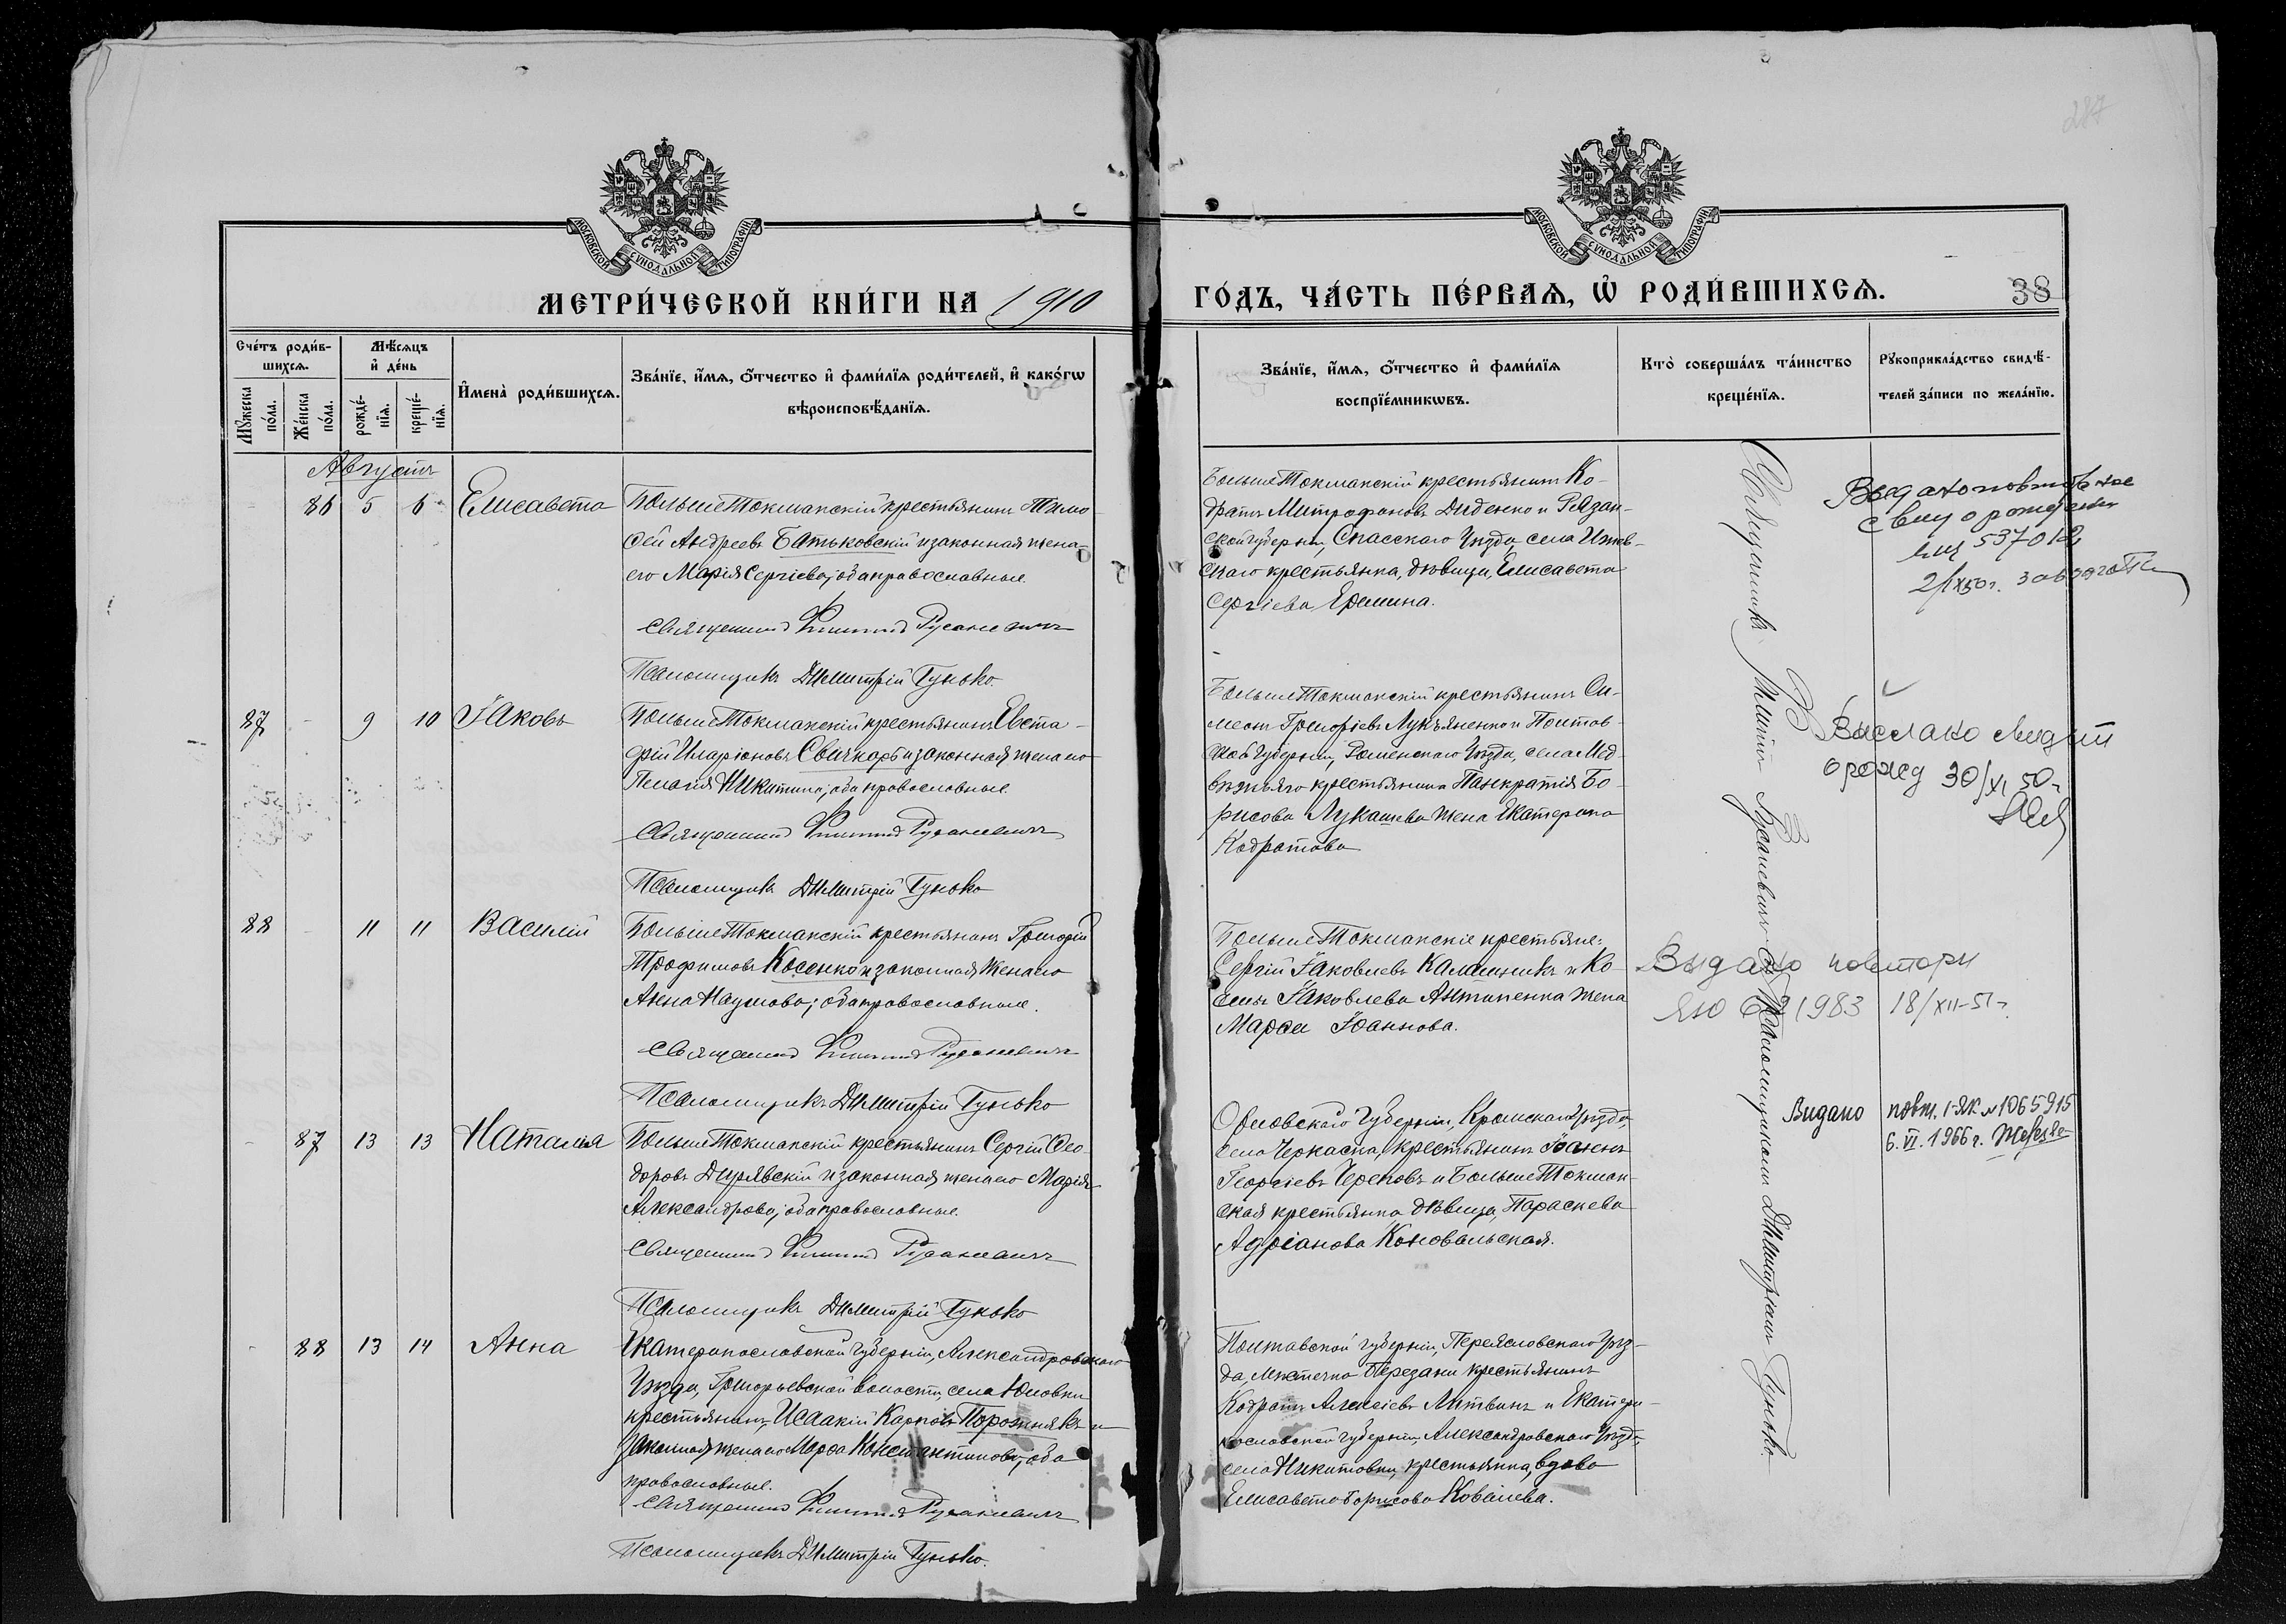 287
МОСКОВСКОЙ СУНОДАЛЬНОЙ ТИПОГРАФІИ
МОСКОВСКОЙ СУНОДАЛЬНОЙ ТИПОГРАФІИ
МЕТРИ́ЧЕСКОЙ КНИ́ГИ НА 1910
ГО́ДЪ, ЧА́СТЬ ПЕ́РВАѦ, Ѽ РОДИ́ВШИХСѦ.
38
Сче́тъ роди́в-
шихсѧ.
Мꙋжеска по́ла.
Же́нска по́ла.
Мѣ́сѧцъ
и҆ де́нь
рожде́-нїѧ.
креще́-нїѧ.
И҆мена̀ роди́вшихсѧ.
Зва́нїе, и҆́мѧ, ѻ҆́тчество и҆ фами́лїѧ роди́телей, и҆ како́гѡ
вѣроисповѣ́данїѧ.
Зва́нїе, и҆́мѧ, ѻ҆́тчество и҆ фами́лїѧ
воспрїе́мникѡвъ.
Кто̀ соверша́лъ та́инство
креще́нїѧ.
Рꙋкоприкла́дство свидѣ́-
телей за́писи по жела́нїю.
Августъ
86 5 6 Елисавета
БольшеТокмакскій крестьянинъ Тимо
ѳей Андреевъ Батьковскій и законная жена
его Марія Сергіева; оба православные.
Священникъ Филиппъ Русаневичъ
Псаломщикъ Димитрій Гунько.
БольшеТокмакскій крестьянинъ Ко-
дратъ Митрофановъ Диденко и Рязан-
ской губерніи, Спасскаго уѣзда, села Ижев-
скаго крестьянка, дѣвица, Елисавета
Сергіева Еремина.
Выдано повторное
о рожден
21/XI 50 г.
87 - 9 10 Іаковъ
БольшеТокмакскій крестьянинъ Евста-
фій Иларіоновъ Свичкарь и законная жена его
Пелагія Никитина; оба православные.
Священникъ Филиппъ Русаневичъ
Псаломщикъ Димитрій Гунько
БольшеТокмакскій крестьянинъ Си-
меонъ Григорьевъ Лукьяненко и Полтав-
ской губерніи, Роменскаго уѣзда, села Мед-
вѣжьяго крестьянина Панкратія Бо-
рисова Лукашева жена Екатерина
Кодратова
о рожд 30/XI 50 г.
88 - 11 11 Василій
БольшеТокмакскій крестьянинъ Григорій
Трофимовъ Косенко и законная жена его
Анна Наумова; оба православные.
Священникъ Филиппъ Русаневичъ
Псаломщикъ Димитрій Гунько
БольшеТокмакскіе крестьяне:
Сергій Іаковлевъ Калашникъ и Ко-
смы Іаковлева Антипенка жена
Марѳа Іоаннова.
Выдано повторн
ЯЮ 621983 18/XII-51 г.
- 87 13 13 Наталія
БольшеТокмакскій крестьянинъ Сергій Ѳео-
доровъ Дирявскій и законная жена его Марія
Александрова; оба православные.
Священникъ Филиппъ Русаневичъ
Псаломщикъ Димитрій Гунько
Орловской губерніи, Кромскаго уѣзда,
села Черкаска, крестьянинъ Іоаннъ
Георгіевъ Череповъ и БольшеТокмак-
ская крестьянка дѣвица, Параскева
Адріанова Коновальская.
Видано повт. І-ЯК № 1065915
6.VI.1966 г.
- 88 13 14 Анна
Екатеринославской губерніи, Александровскаго
уѣзда, Григорьевской волости, села Юловки
крестьянинъ, Исаакій Карповъ Порожнякъ и
законная жена его Марѳа Константинова; оба
православные.
Священникъ Филиппъ Русаневичъ
Псаломщикъ Димитрій Гунько.
Полтавской губерніи, Переяславскаго уѣз-
да, мѣстечка Березани крестьянинъ
Кодратъ Алексіевъ Литвинъ и Екатери-
нославской губерніи, Александровскаго уѣзда,
села Никитовки, крестьянка, вдова
Елисавета Борисова Ковалева.
Священникъ Филиппъ Русаневичъ съ Псаломщикомъ Димитріемъ Гунько.